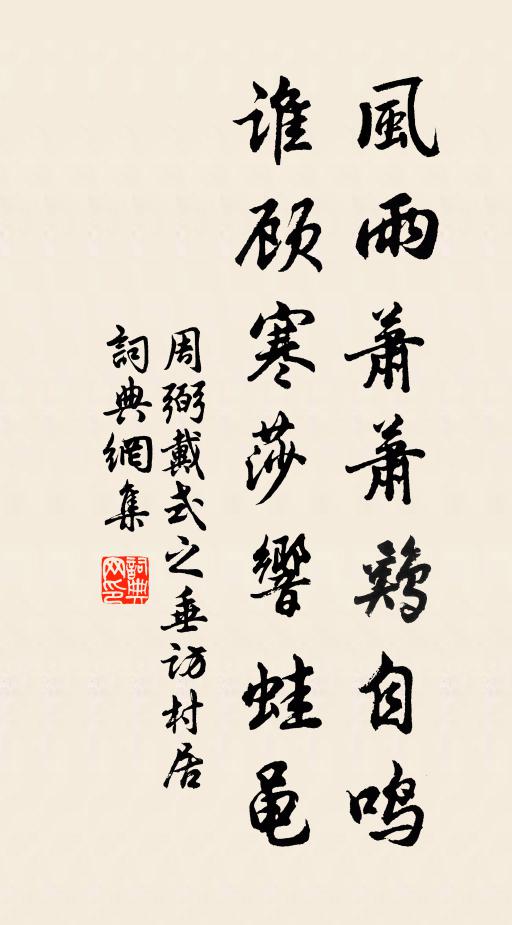 風雨蕭蕭鷄自鳴
誰顾寒莎響蛙黽
周弼戴式之垂访村居
詞典網集
詞典網印